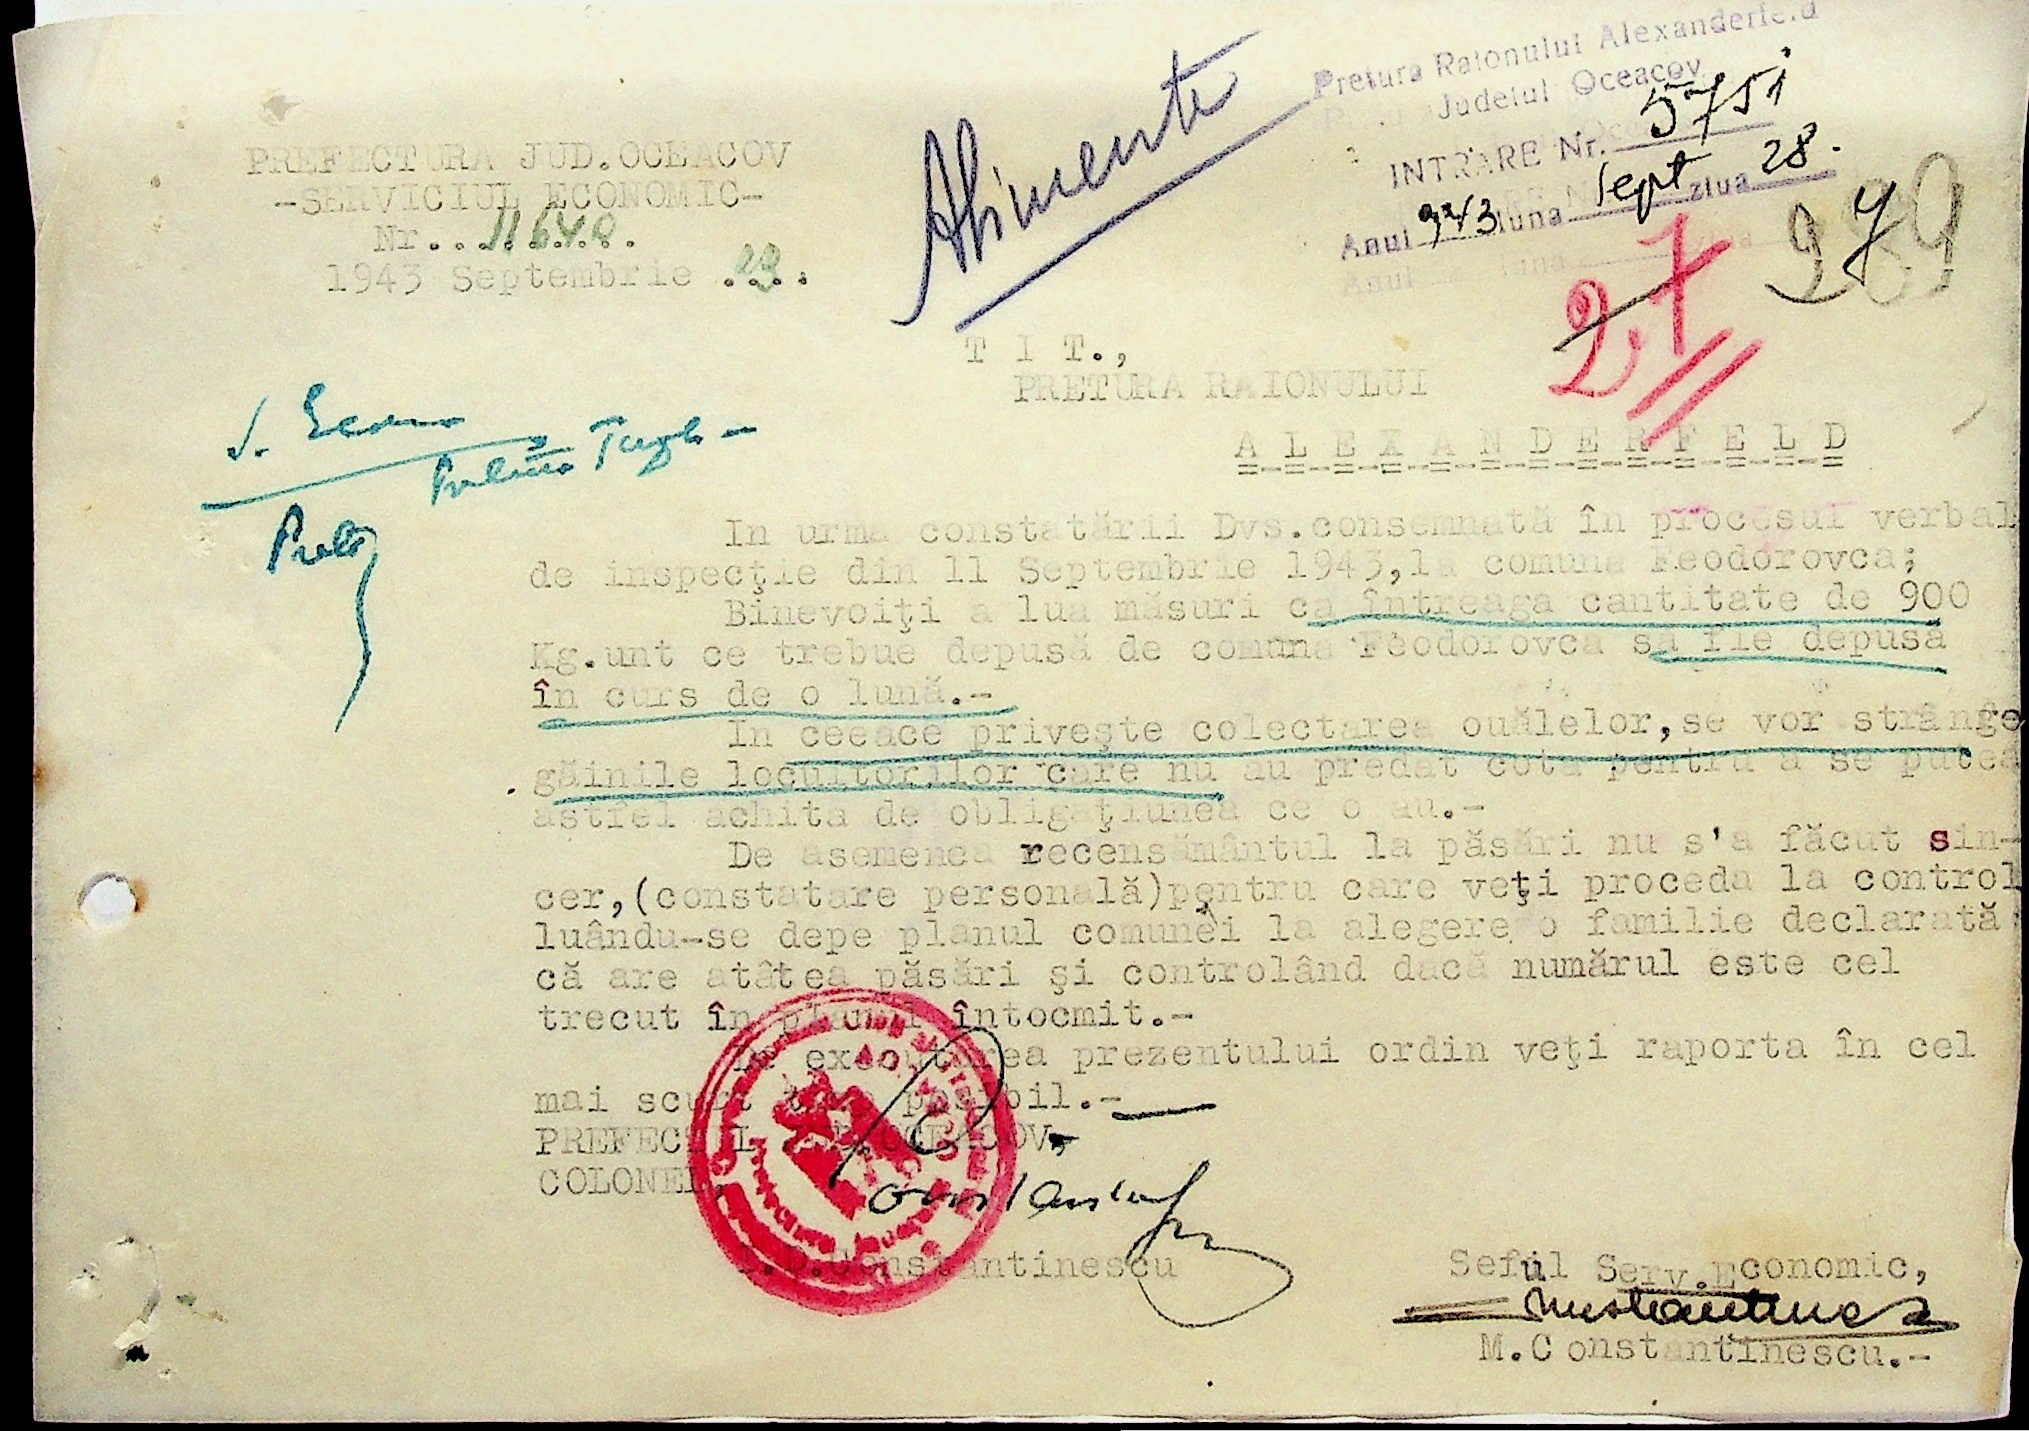 Pretura Raionului Alexanderfeld
Judetul Oceacov
INTRARE Nr. 5751
Anul 943 luna Sept ziua 28.
Alimente
PREFECTURA JUD.OCEACOV
-SERVICIUL ECONOMIC-
Nr...11640...
1943 Septembrie ....
27
T I T.,
PRETURA RAIONULUI
A L E X A N D E R F E L D
In urma constatării Dvs.consemnată în procesul verbal
de inspecţie din 11 Septembrie 1943,la comuna Feodorovca;
Binevoiţi a lua măsuri ca întreaga cantitate de 900
Kg.unt ce trebue depusă de comuna Feodorovca să fie depusă
în curs de o lună.-
In ceeace priveşte colectarea ouălelor,se vor strânge
găinile locuitorilor care nu au predat cota pentru a se putea
astfel achita de obligaţiunea ce o au.-
De asemenea recensământul la păsări nu s'a făcut sin-
cer,(constatare personală)pentru care veţi proceda la control
luându-se depe planul comunei la alegere o familie declarată
că are atâtea păsări şi controlând dacă numărul este cel
trecut în planul întocmit.-
In executarea prezentului ordin veţi raporta în cel
mai scurt timp posibil.-
PREFECTUL JUD.OCEACOV,
COLONEL,
Constantinescu
Sefül Serv.Economic,
M.Constantinescu.-